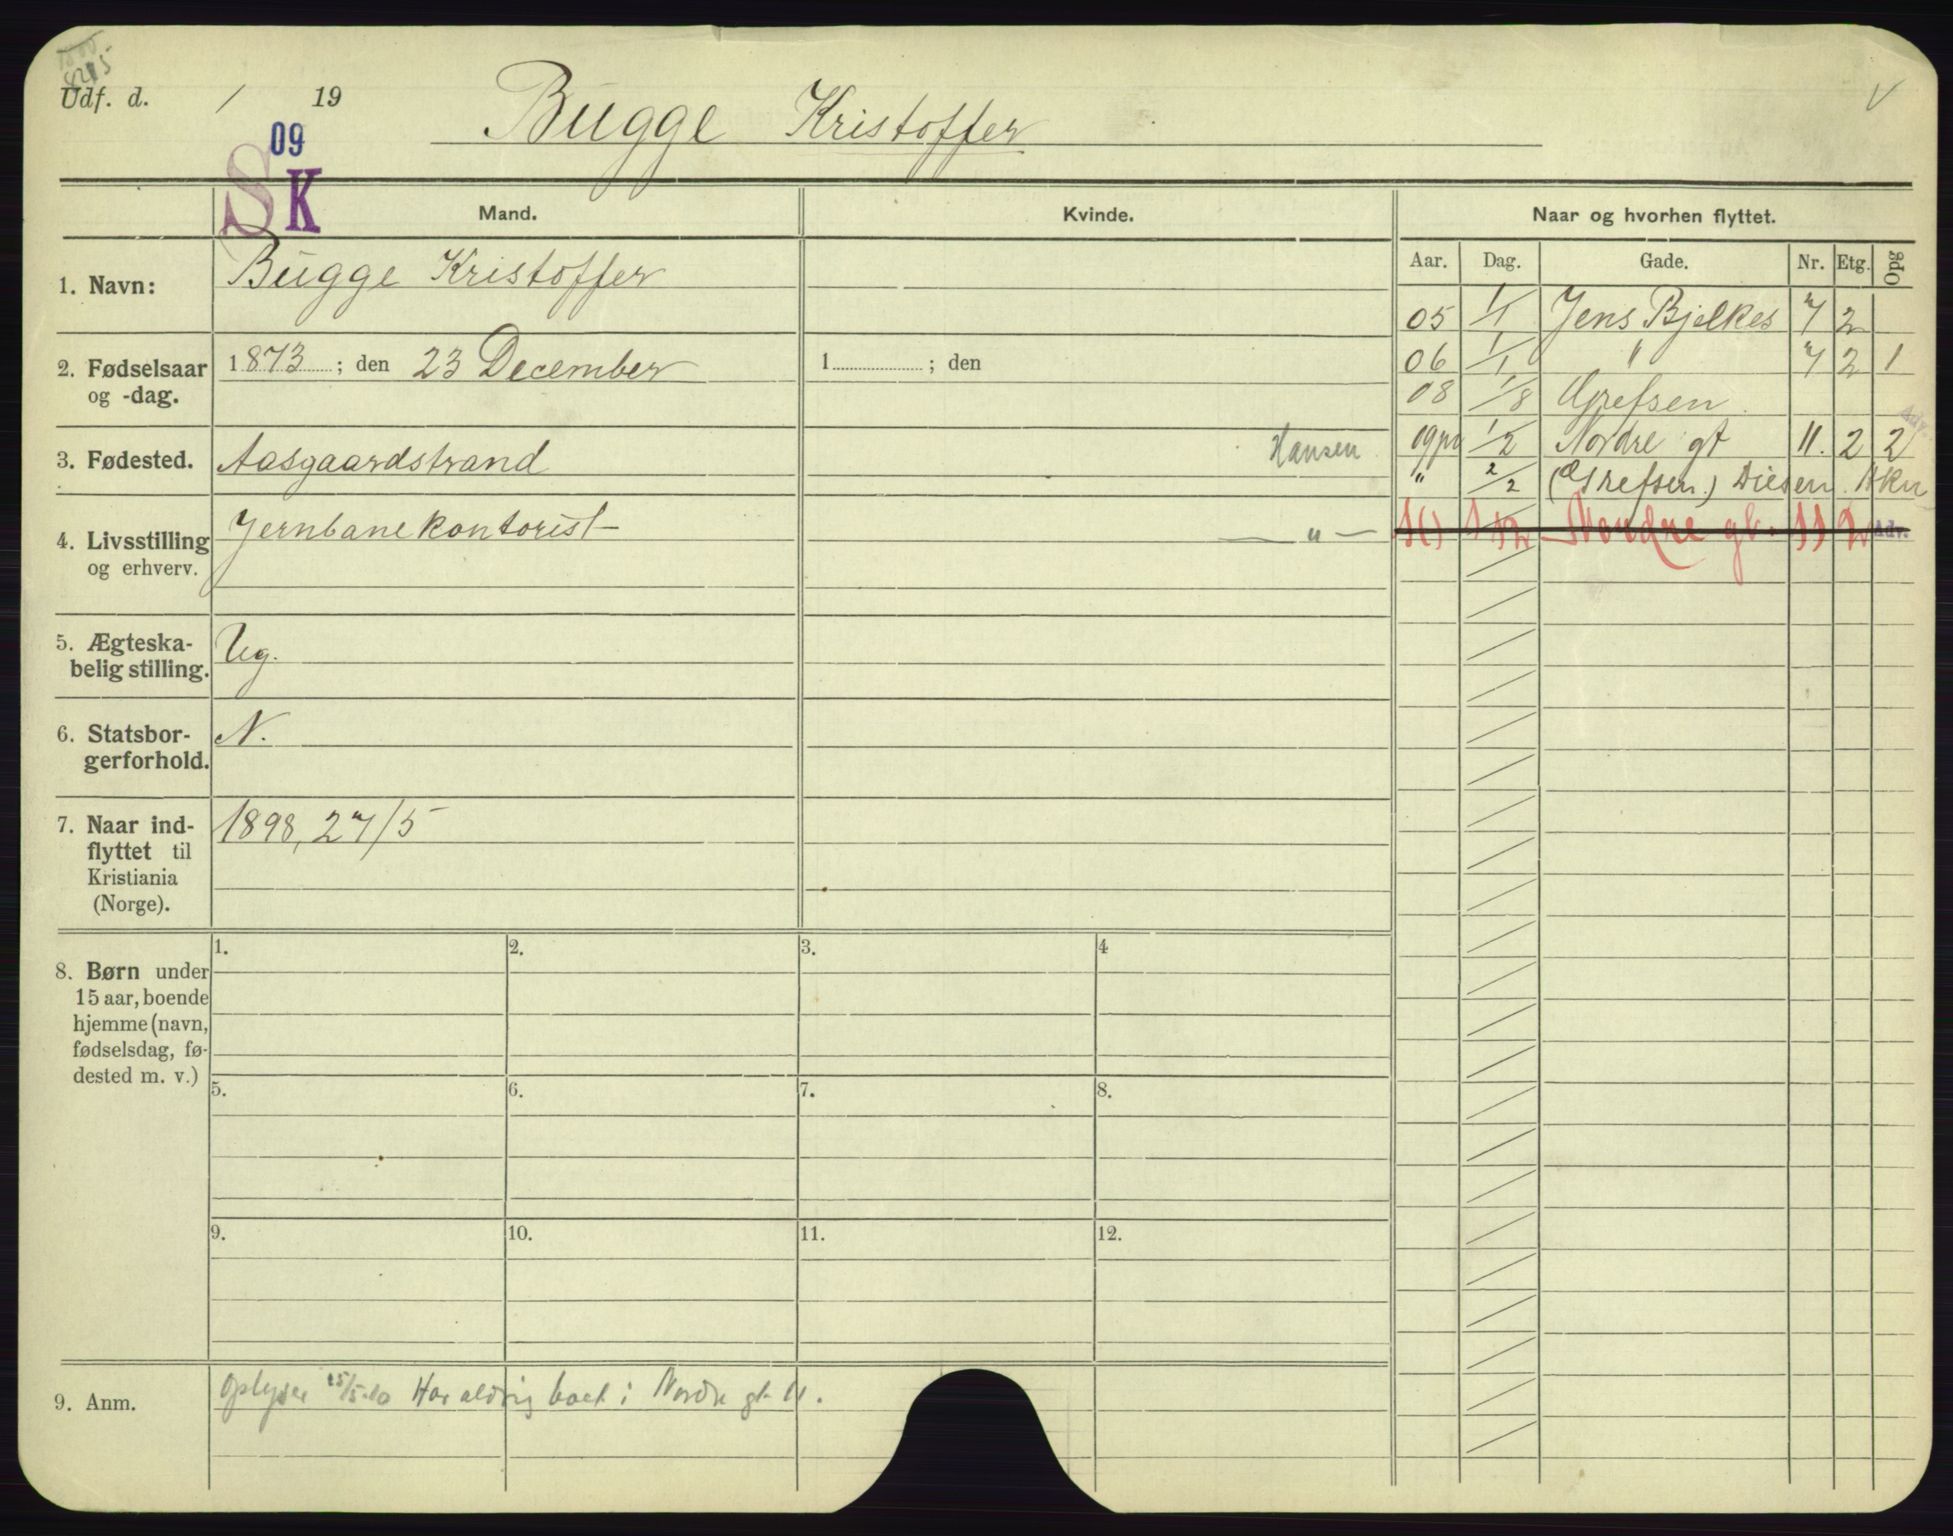 8215
Udf. d. / 19
Bugge Kristoffer
09
S K
Mand. Kvinde. Naar og hvorhen flyttet.
Aar. Dag. Gade. Nr. Etg. Opg
1. Navn: Bugge Kristoffer
05 1/1 Jens Bjelkes 7 2
2. Fødselsaar og -dag. 1873 ; den 23 December 1 ; den
06 1/1 " 7 2 1
08 1/8 Grefsen.
3. Fødested. Aasgaardstrand
Hansen 09 1/2 Nordre gt 11. 2 2 Adv.
" 2/2 (Grefsen.) Diesen Akn
4. Livsstilling og erhverv. Jernbanekontorist
— " — 10 1 12 Nordre gt. 11 2 Adv.
5. Ægteska-
belig stilling. Ug.
6. Statsbor-
gerforhold. N.
7. Naar ind-
flyttet til
Kristiania
(Norge).
1898, 27/5
8. Børn under
15 aar, boende
hjemme (navn,
fødselsdag, fø-
dested m. v.)
1. 2. 3. 4
5. 6. 7. 8.
9. 10. 11. 12.
9. Anm. Oplyser 25/5-10 Har aldrig boet i Nordre gt 11.